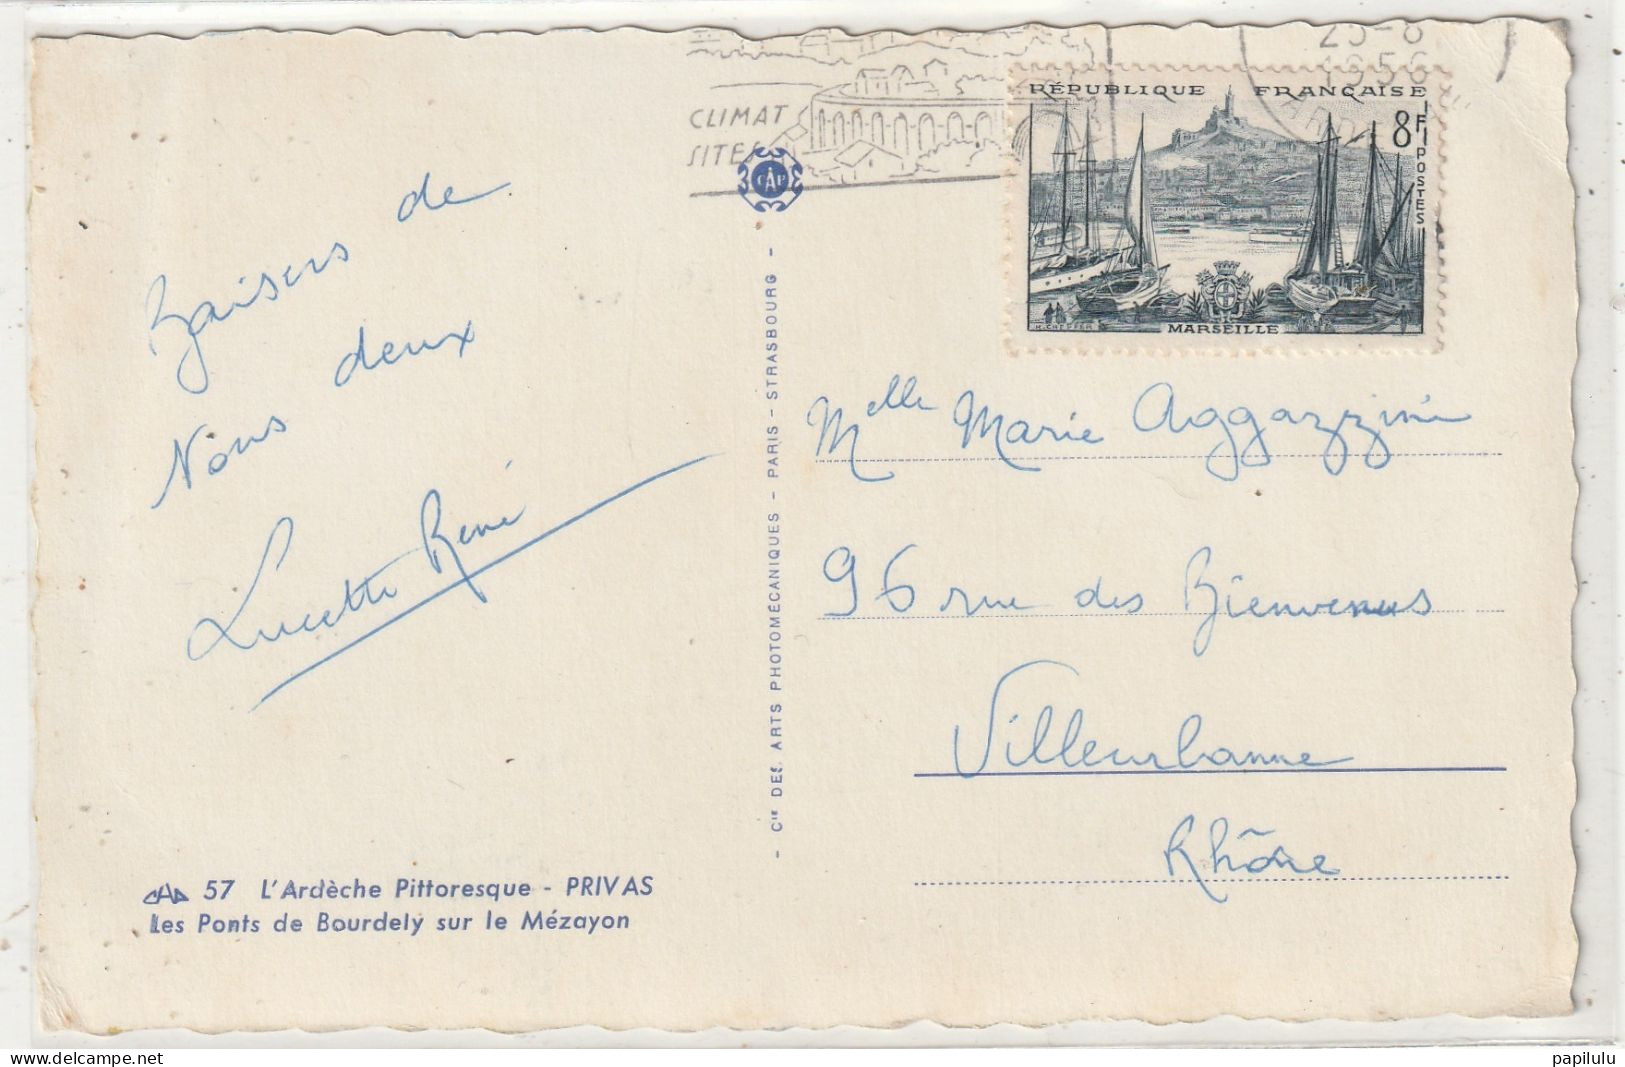 25-8
1956
CLIMAT
SITES
RÉPUBLIQUE FRANÇAISE
8F
POSTES
H. CHEFFER
MARSEILLE
CAP
Baisers de
Nous deux
Lucette René
- Cie DES ARTS PHOTOMÉCANIQUES - PARIS - STRASBOURG -
Melle Marie Aggazzini
96 rue des Bienvenus
Villeurbanne
Rhône
57 L'Ardèche Pittoresque - PRIVAS
Les Ponts de Bourdely sur le Mézayon
www.delcampe.net
papilulu